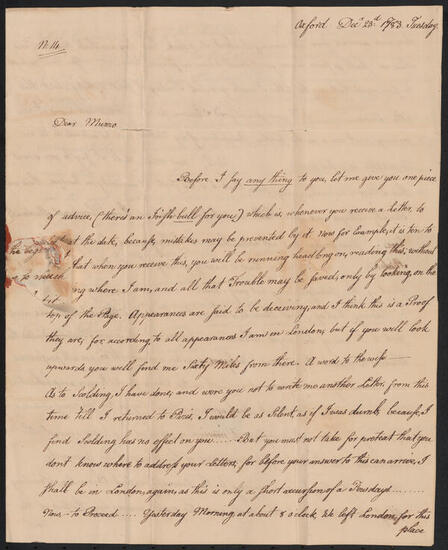 Oxford Decr 23d 1783 Tuesday.
N. 14.
Dear Munro
Before I say any thing to you, let me give you one piece
of advice, (there's an Irish bull for you) which is, whenever you receive a letter, to
at the date, because mistakes may be prevented by it. Now for Example, it is ten to
that when you receive this, you will be running headlong on, reading this, without
ng where I am, and all that Trouble may be saved, only by looking, on the
top of the Page. Appearances are said to be deceiving, and I think this is a Proof
they are, for according to all appearances I am in London, but if you will look
upwards you will find me Sixty Miles from there. A word to the wise
As to Scolding, I have done, and were you not to write me another Letter, from this
time till I returned to Paris, I would be as Silent, as if I was dumb, because, I
find Scolding has no effect on you ..... But you must not take for pretext that you
don't know where to address your letters, for before your answer to this can arrive, I
shall be in London, again, as this is only a short excursion of a few days ........
Now - to Proceed .... Yesterday Morning, at about 8 oClock, We left London, for this
place